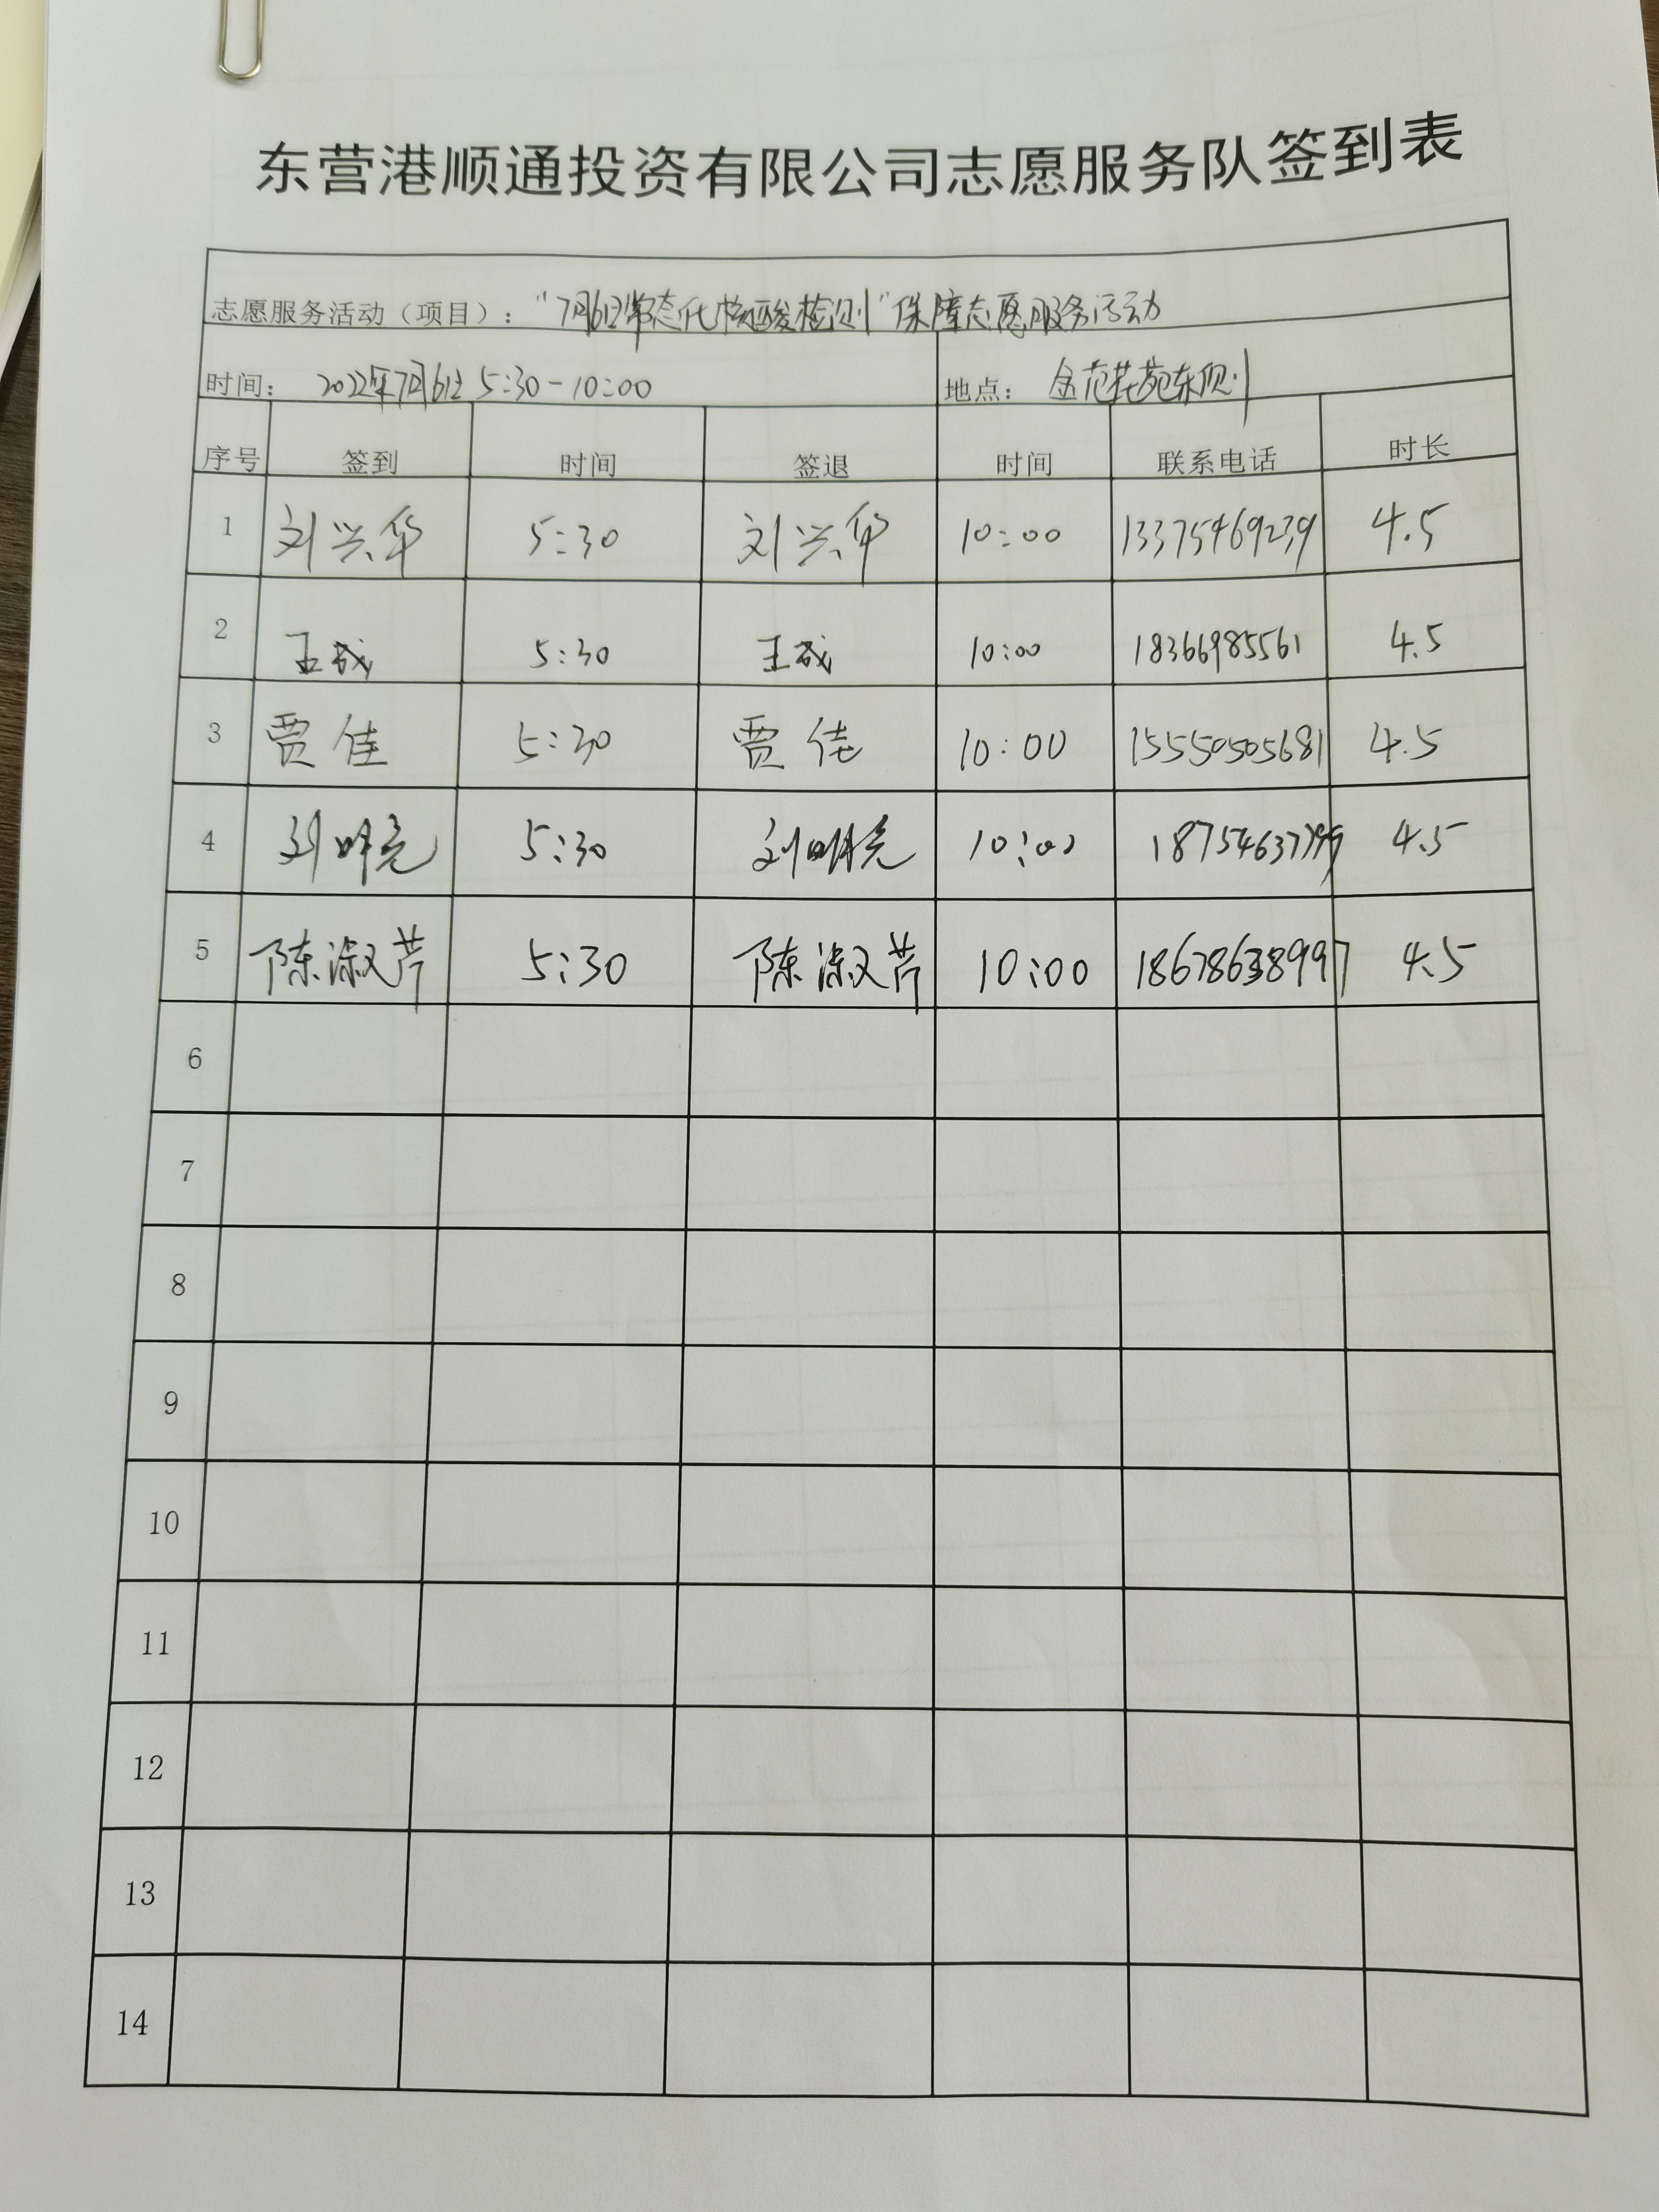 东营港顺通投资有限公司志愿服务队签到表
志愿服务活动（项目）：“7月6日常态化核酸检测”保障志愿服务活动
时间： 2022年7月6日 5:30-10:00 地点： 金范花苑东侧
序号 签到 时间 签退 时间 联系电话 时长
1 刘兴华 5:30 刘兴华 10:00 13375469239 4.5
2 王成 5:30 王成 10:00 18366985561 4.5
3 贾佳 5:30 贾佳 10:00 15550505681 4.5
4 刘明亮 5:30 刘明亮 10:00 4.5
5 陈淑芹 5:30 陈淑芹 10:00 18678638997 4.5
6
7
8
9
10
11
12
13
14